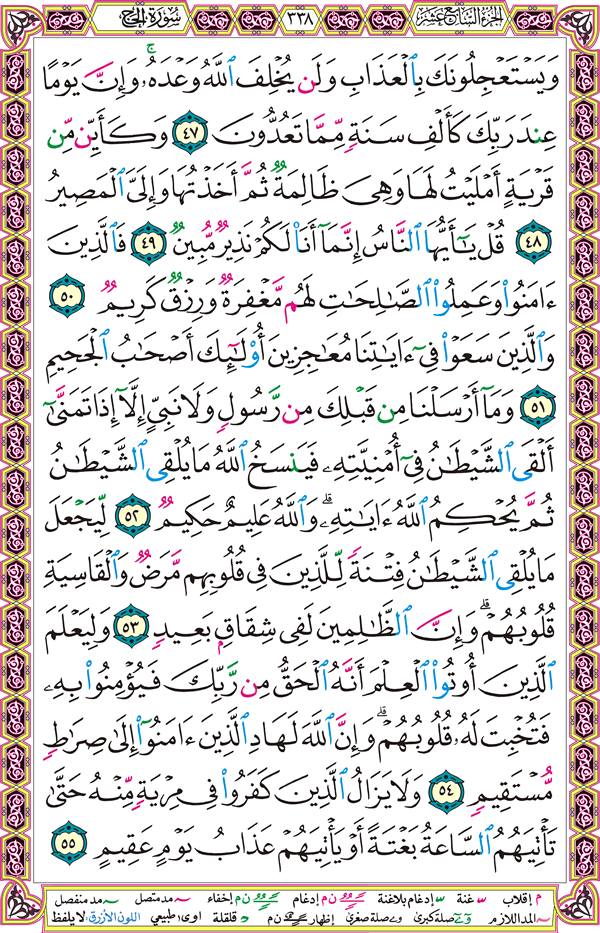 الجزء السابع عشر ٣٣٨ سورة الحج
وَيَسْتَعْجِلُونَكَ بِالْعَذَابِ وَلَن يُخْلِفَ اللَّهُ وَعْدَهُۥ ۚ وَإِنَّ يَوْمًا
عِندَ رَبِّكَ كَأَلْفِ سَنَةٍ مِّمَّا تَعُدُّونَ ٤٧ وَكَأَيِّن مِّن
قَرْيَةٍ أَمْلَيْتُ لَهَا وَهِيَ ظَالِمَةٌ ثُمَّ أَخَذْتُهَا وَإِلَيَّ الْمَصِيرُ
٤٨ قُلْ يَا أَيُّهَا النَّاسُ إِنَّمَا أَنَا لَكُمْ نَذِيرٌ مُّبِينٌ ٤٩ فَالَّذِينَ
ءَامَنُوا وَعَمِلُوا الصَّالِحَاتِ لَهُم مَّغْفِرَةٌ وَرِزْقٌ كَرِيمٌ ٥٠
وَالَّذِينَ سَعَوْا فِي ءَايَاتِنَا مُعَاجِزِينَ أُوْلَٰئِكَ أَصْحَابُ الْجَحِيمِ
٥١ وَمَا أَرْسَلْنَا مِن قَبْلِكَ مِن رَّسُولٍ وَلَا نَبِيٍّ إِلَّا إِذَا تَمَنَّىٰ
أَلْقَى الشَّيْطَانُ فِي أُمْنِيَّتِهِۦ فَيَنسَخُ اللَّهُ مَا يُلْقِي الشَّيْطَانُ
ثُمَّ يُحْكِمُ اللَّهُ ءَايَاتِهِۦ ۗ وَاللَّهُ عَلِيمٌ حَكِيمٌ ٥٢ لِّيَجْعَلَ
مَا يُلْقِي الشَّيْطَانُ فِتْنَةً لِّلَّذِينَ فِي قُلُوبِهِم مَّرَضٌ وَالْقَاسِيَةِ
قُلُوبُهُمْ ۗ وَإِنَّ الظَّالِمِينَ لَفِي شِقَاقٍ بَعِيدٍ ٥٣ وَلِيَعْلَمَ
الَّذِينَ أُوتُوا الْعِلْمَ أَنَّهُ الْحَقُّ مِن رَّبِّكَ فَيُؤْمِنُوا بِهِۦ
فَتُخْبِتَ لَهُۥ قُلُوبُهُمْ ۗ وَإِنَّ اللَّهَ لَهَادِ الَّذِينَ ءَامَنُوا إِلَىٰ صِرَاطٍ
مُّسْتَقِيمٍ ٥٤ وَلَا يَزَالُ الَّذِينَ كَفَرُوا فِي مِرْيَةٍ مِّنْهُ حَتَّىٰ
تَأْتِيَهُمُ السَّاعَةُ بَغْتَةً أَوْ يَأْتِيَهُمْ عَذَابُ يَوْمٍ عَقِيمٍ ٥٥
م إقلاب غنة إدغام بلاغنة ن م إدغام إخفاء مد متصل مد منفصل
المد اللازم صلة كبرى صلة صغرى إظهار ن م قلقلة اوى طبيعي اللون الأزرق لا يلفظ